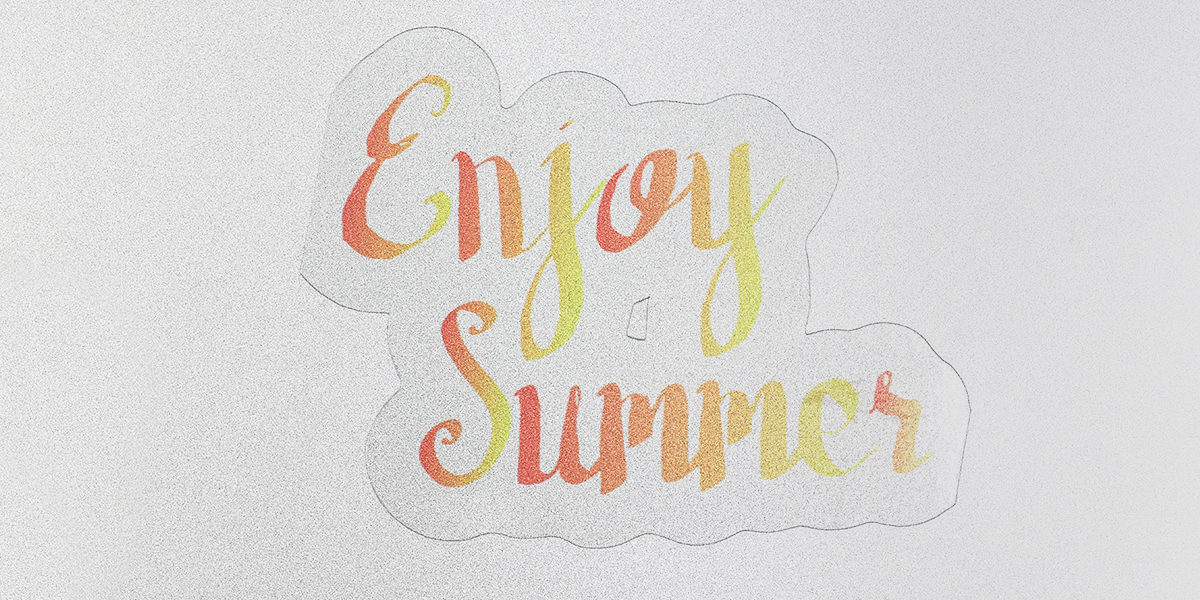 Enjoy
Summer